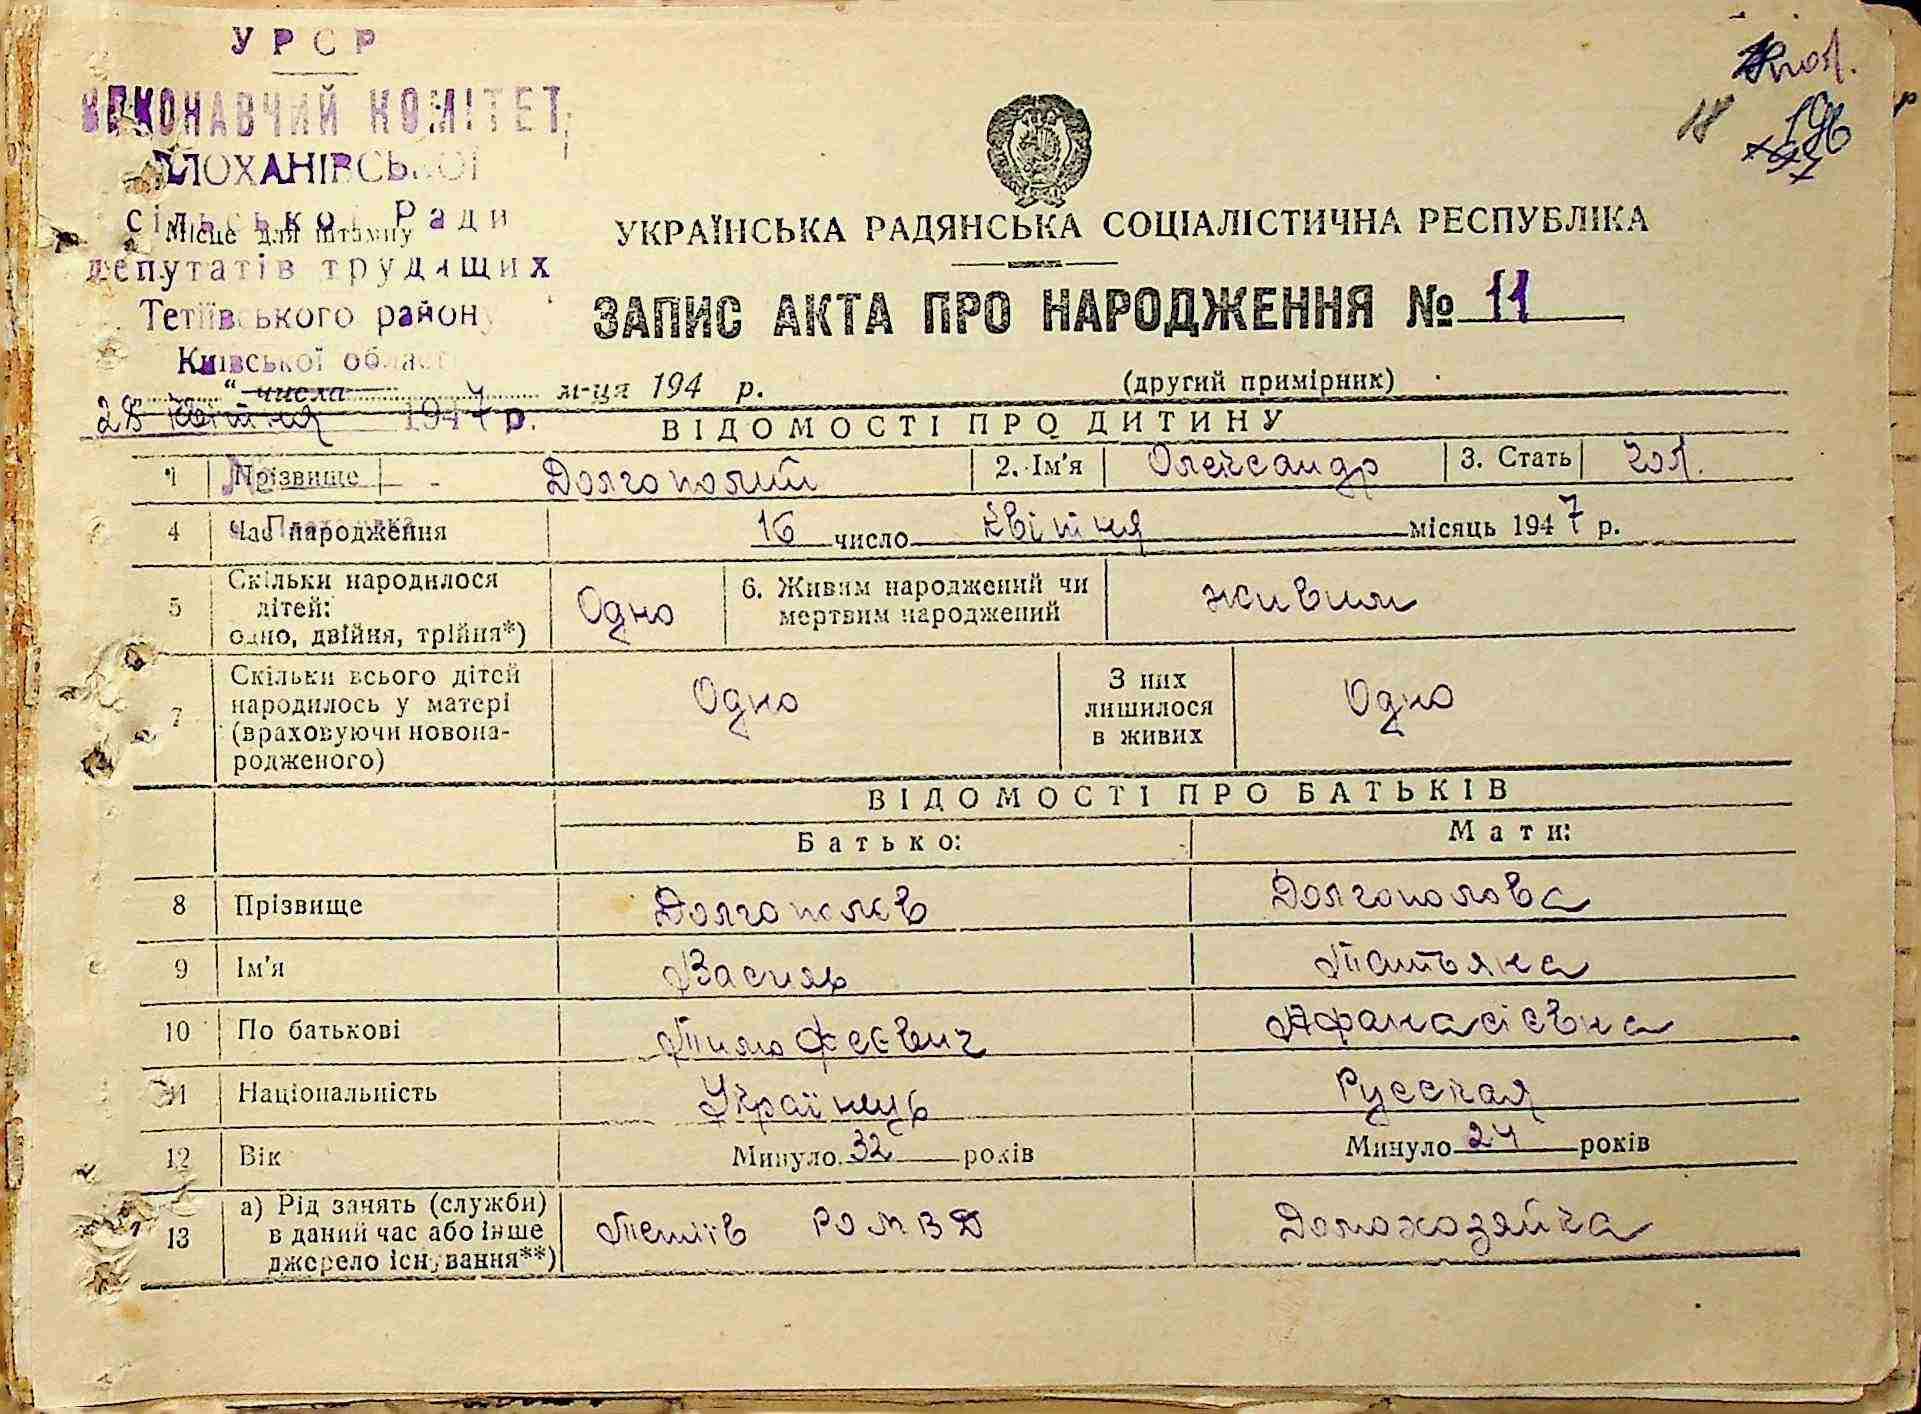 УРСР
ВИКОНАВЧИЙ КОМІТЕТ
ПЛОХАНІВСЬКОЇ
сільської Ради
Місце для штампу
депутатів трудящих
Тетіївського району
Київської області
18
УКРАЇНСЬКА РАДЯНСЬКА СОЦІАЛІСТИЧНА РЕСПУБЛІКА
ЗАПИС АКТА ПРО НАРОДЖЕННЯ № 11
„ “ числа м-ця 194 р. (другий примірник)
28 квітня 1947 р.
ВІДОМОСТІ ПРО ДИТИНУ
1 Прізвище Долгополий 2. Ім'я Олександр 3. Стать чол.
4 Час народження 16 число квітня місяць 1947 р.
5 Скільки народилося дітей: одно, двійня, трійня*) Одно 6. Живим народжений чи мертвим народжений живим
7 Скільки всього дітей народилось у матері (враховуючи новонародженого) Одно З них лишилося в живих Одно
ВІДОМОСТІ ПРО БАТЬКІВ
Батько: Мати:
8 Прізвище Долгополов Долгополова
9 Ім'я Василь Татьяна
10 По батькові Тимофеєвич Афанасієвна
11 Національність Українець Русская
12 Вік Минуло 32 років Минуло 24 років
13 а) Рід занять (служби) в даний час або інше джерело існування**) Тетіїв РОМВД Домохозяйка